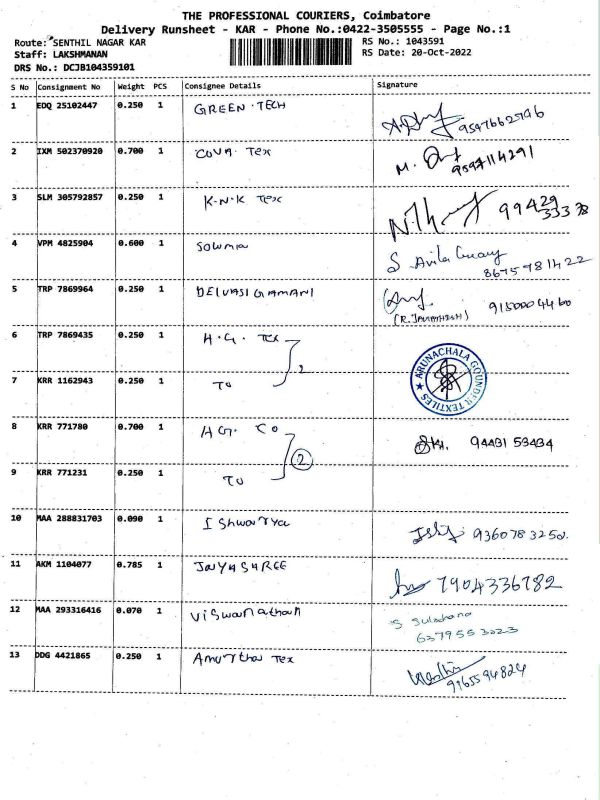 THE PROFESSIONAL COURIERS, Coimbatore
Delivery Runsheet - KAR - Phone No.:0422-3505555 - Page No.:1
Route: SENTHIL NAGAR KAR
RS No.: 1043591
Staff: LAKSHMANAN
RS Date: 20-Oct-2022
DRS No.: DCJB104359101
S No Consignment No Weight PCS Consignee Details Signature
1 EDQ 25102447 0.250 1 GREEN.TECH 9597662796
2 IXM 502370920 0.700 1 COVA. Tex M. 9597114291
3 SLM 305792857 0.250 1 K.N.K Tex 99429
33378
4 VPM 4825904 0.600 1 Sowmia S
8675781422
5 TRP 7869964 0.250 1 DEIVASIGAMANI 9150004460
6 TRP 7869435 0.250 1 H.G. Tex
ARUNACHALA GOUNDER TEXTILES
7 KRR 1162943 0.250 1 To
8 KRR 771780 0.700 1 HG. Co 94431 53434
2
9 KRR 771231 0.250 1 To
10 MAA 288831703 0.090 1 Ishwarya 9360783250.
11 AKM 1104077 0.785 1 JAYASHREE 7904336782
12 MAA 293316416 0.070 1 Viswanathan S Sulochana
6379553023
13 DDG 4421865 0.250 1 Amurtha Tex
9965594824